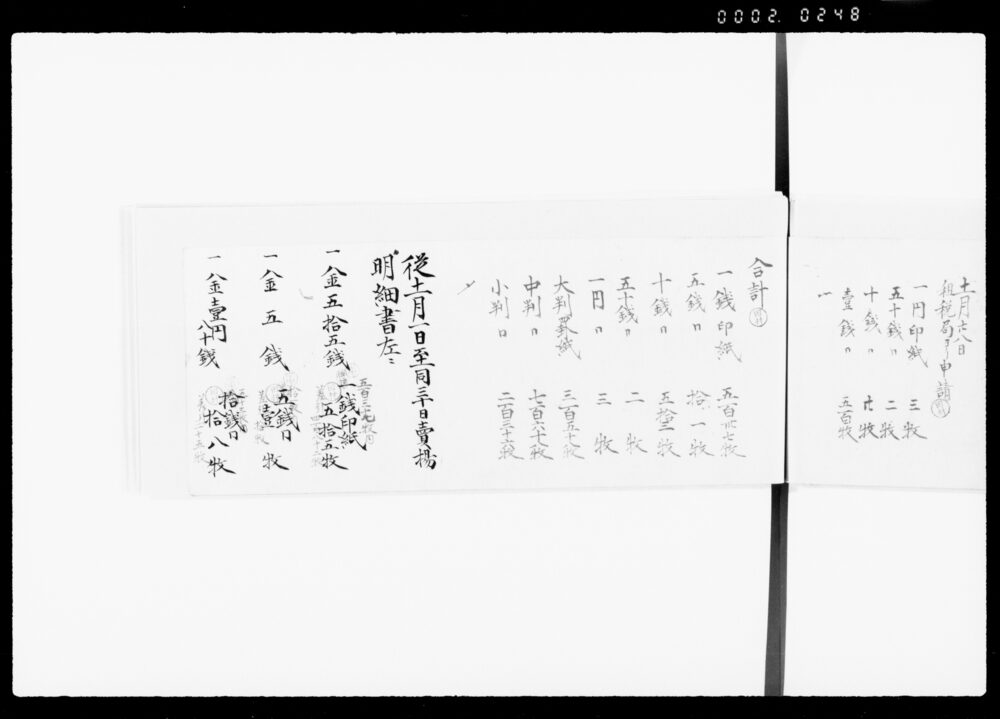 0002. 0248
十一月十八日
租税局ヨリ申請
一円印紙 三枚
五十銭〃 二枚
十銭〃 廿枚
壹銭〃 五百枚
合計
一銭印紙 五百卅七枚
五銭〃 拾一枚
十銭〃
五十銭〃 二枚
一円〃 三枚
大判罫紙 三百五十枚
中判〃 七百六十七枚
小判〃 二百三十六枚
従十一月一日至同三十日賣揚
明細書左ニ
一金五拾五銭 一銭印紙 五拾五枚
一金五銭 五銭〃 壹枚
一金壹円八十銭 拾銭〃 拾八枚